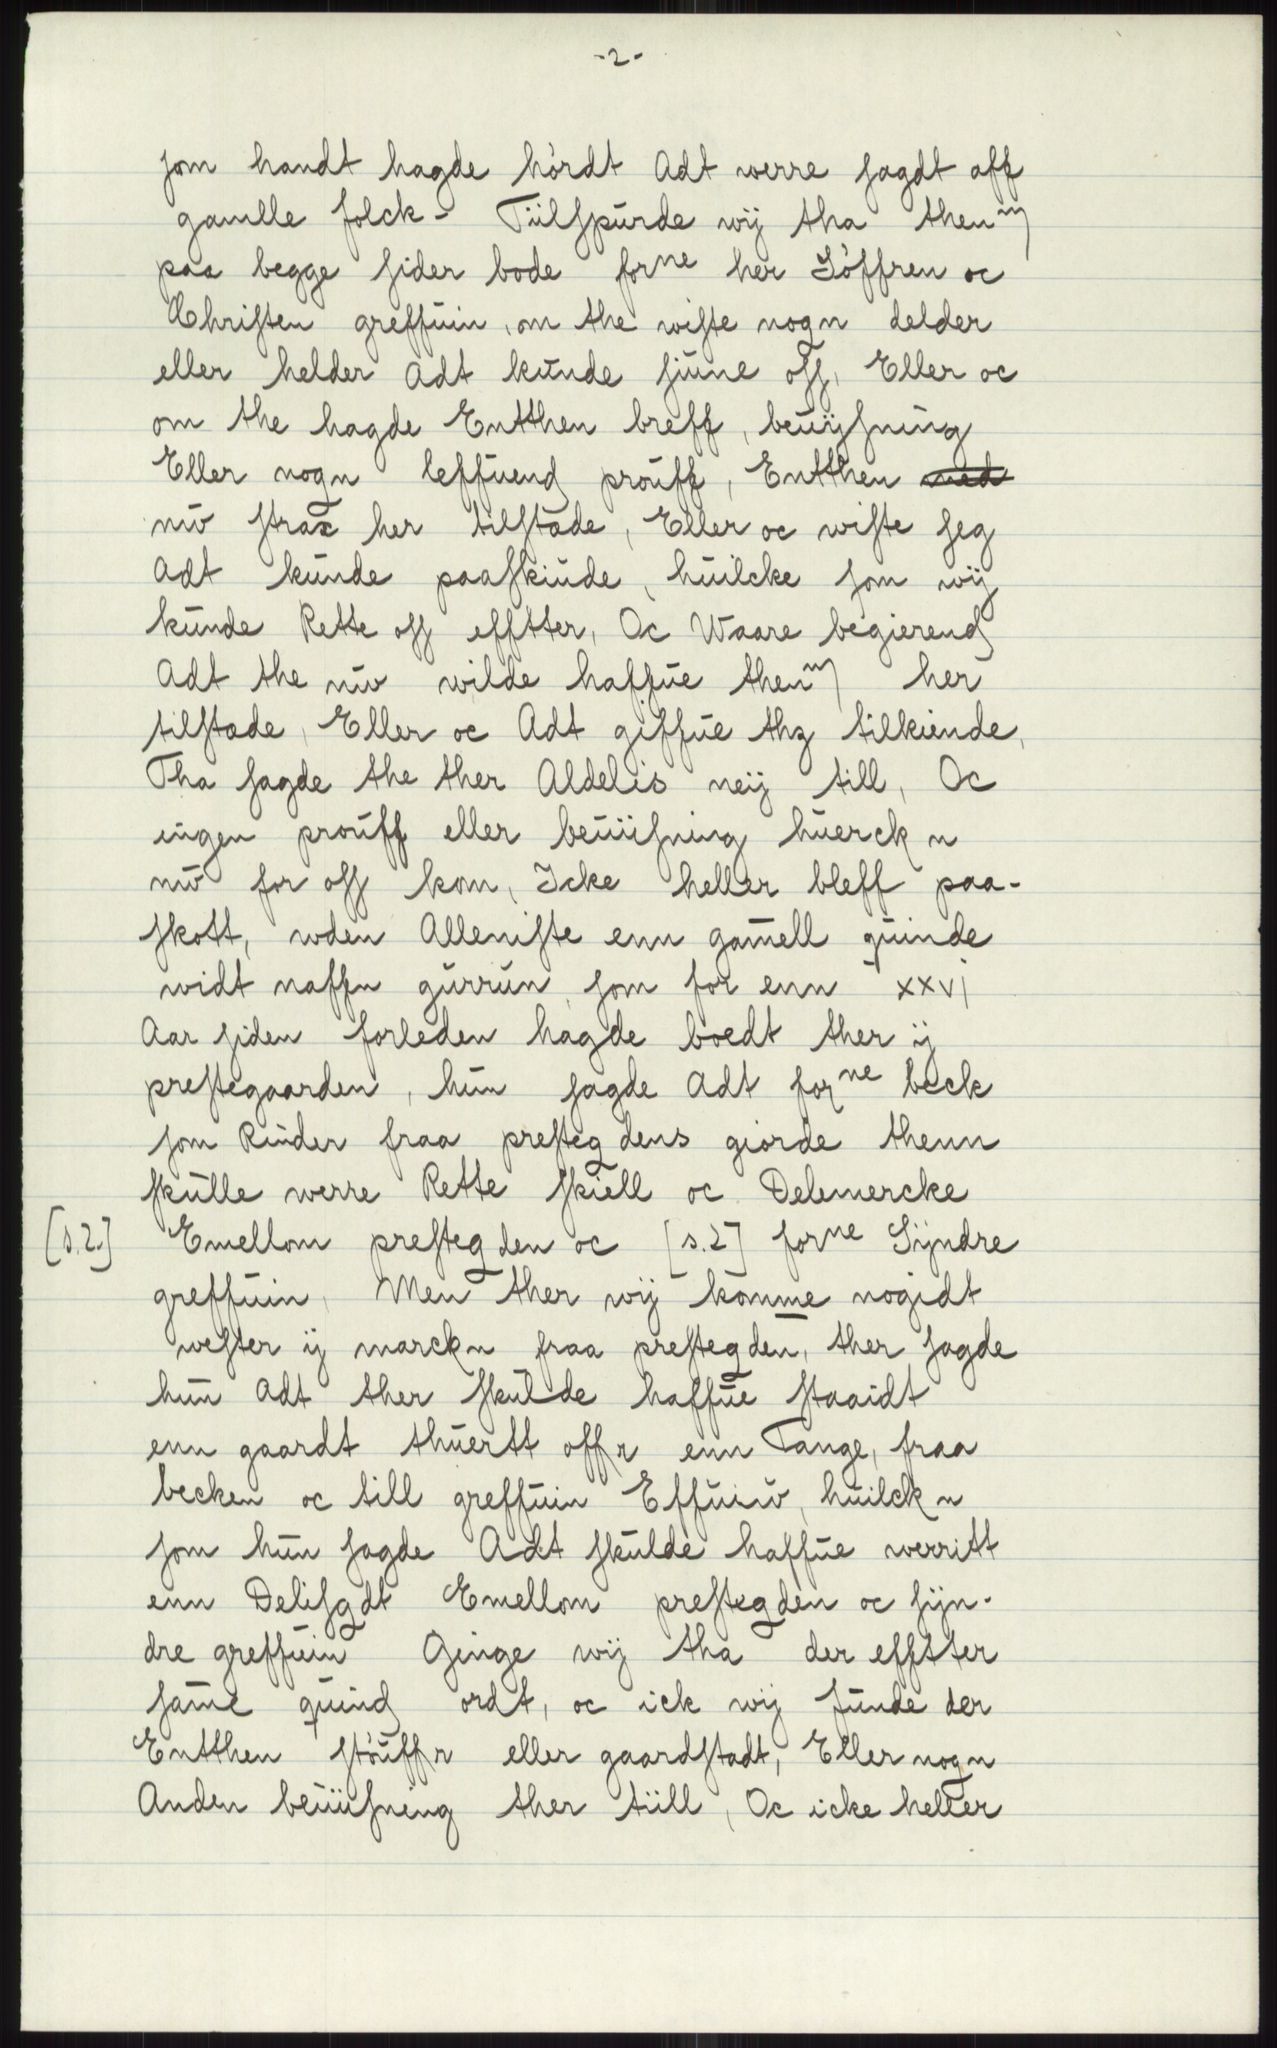 -2-
som handt hagde hørdt Adt werre sagdt aff
gamlle folck - Tiilspurde wij tha then m
paa begge sider bode forne her Söffren oc
Christen greffuin, om the wiste nogn delder
eller helder Adt kunde siune oss, Eller oc
om the hagde Entthen breff, beuijsning
Eller nogn leffuend prouff, Entthen ned
nw strax her tilstæde, Eller oc wiste seg
Adt kunde paaskiude, huilcke som wij
kunde Rette oss efftter, Oc Waare begierend
Adt the nw wilde haffue then m her
tilstæde, Eller oc Adt giffue thz tilkiende,
Tha sagde the ther Aldelis neij till, Oc
ingen prouff eller beuiisning huerck n
nw for oss kom, Icke heller bleff paa-
skott, wden Alleniste enn gamell quinde
widt naffn gurrun, som for enn xxvj
Aar siden forleden hagde boedt ther ij
prestegaarden, hun sagde Adt forne beck
som Rinder fraa presteg dens giorde thenn
skulle werre Rette skiell oc Delemercke
[s.2.] Emellom presteg den oc [s.2] forne Sÿndre
greffuin, Men ther wij komme nogidt
wester ij marckn fraa prestegden, ther sagde
hun Adt ther skulde haffue staaidt
enn gaardt thuertt offr enn Tange, fraa
becken oc till greffuin Effuiw, huilck n
som hun sagde Adt skulde haffue werritt
enn Delisgdt Emellom prestegden oc sÿn-
dre greffuin Ginge wij tha der efftter
same quind ordt, oc ick wij funde der
Entthen støuffr eller gaardstadt, Eller nogn
Anden beuiisning ther tiill, Oc icke heller